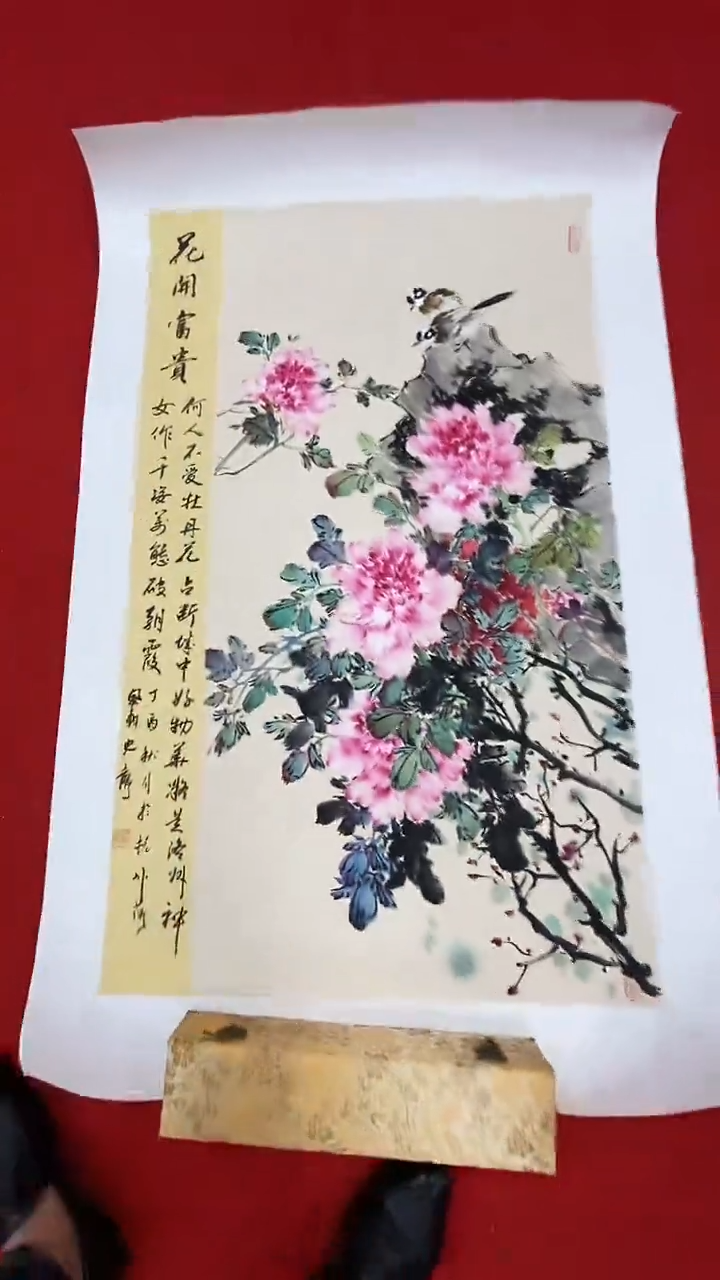 花開富貴
何人不愛牡丹花占斷城中好物華疑是洛川神
女作千姿萬態破朝霞
丁酉秋月於杭州